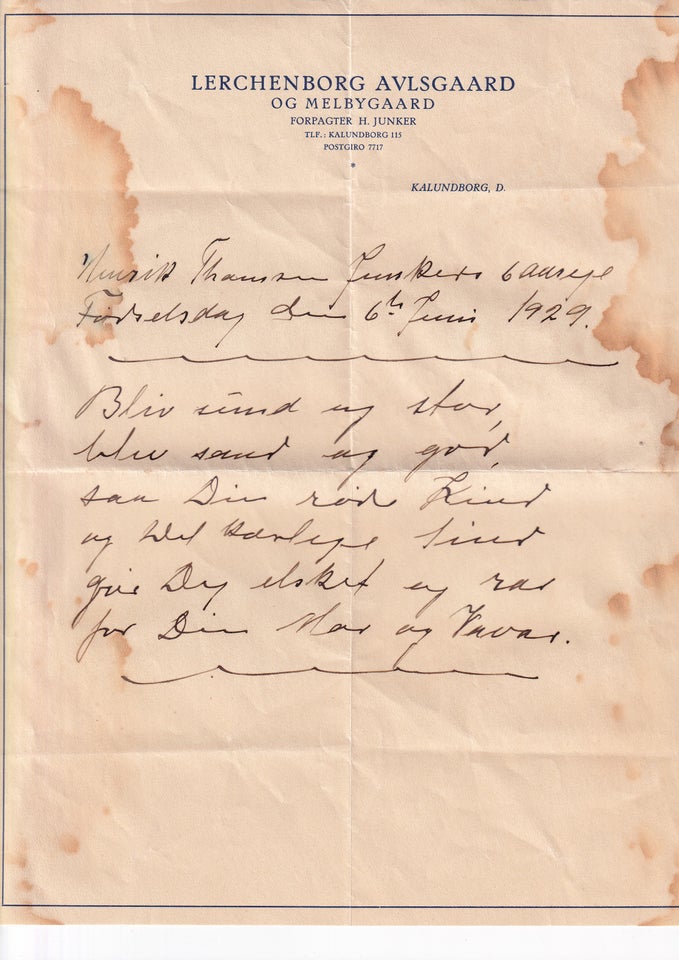 LERCHENBORG AVLSGAARD
OG MELBYGAARD
FORPAGTER H. JUNKER
TLF.: KALUNDBORG 115
POSTGIRO 7717
*
KALUNDBORG, D.
Henrik Thomsen Junkers 6 Aarige
Fødselsdag den 6th Juni 1929.
Bliv sund og stor,
bliv sand og god,
saa Din rød Kind
og kærlige Sind
gør Dig elsket og rar
for Din Mor og Vavar.